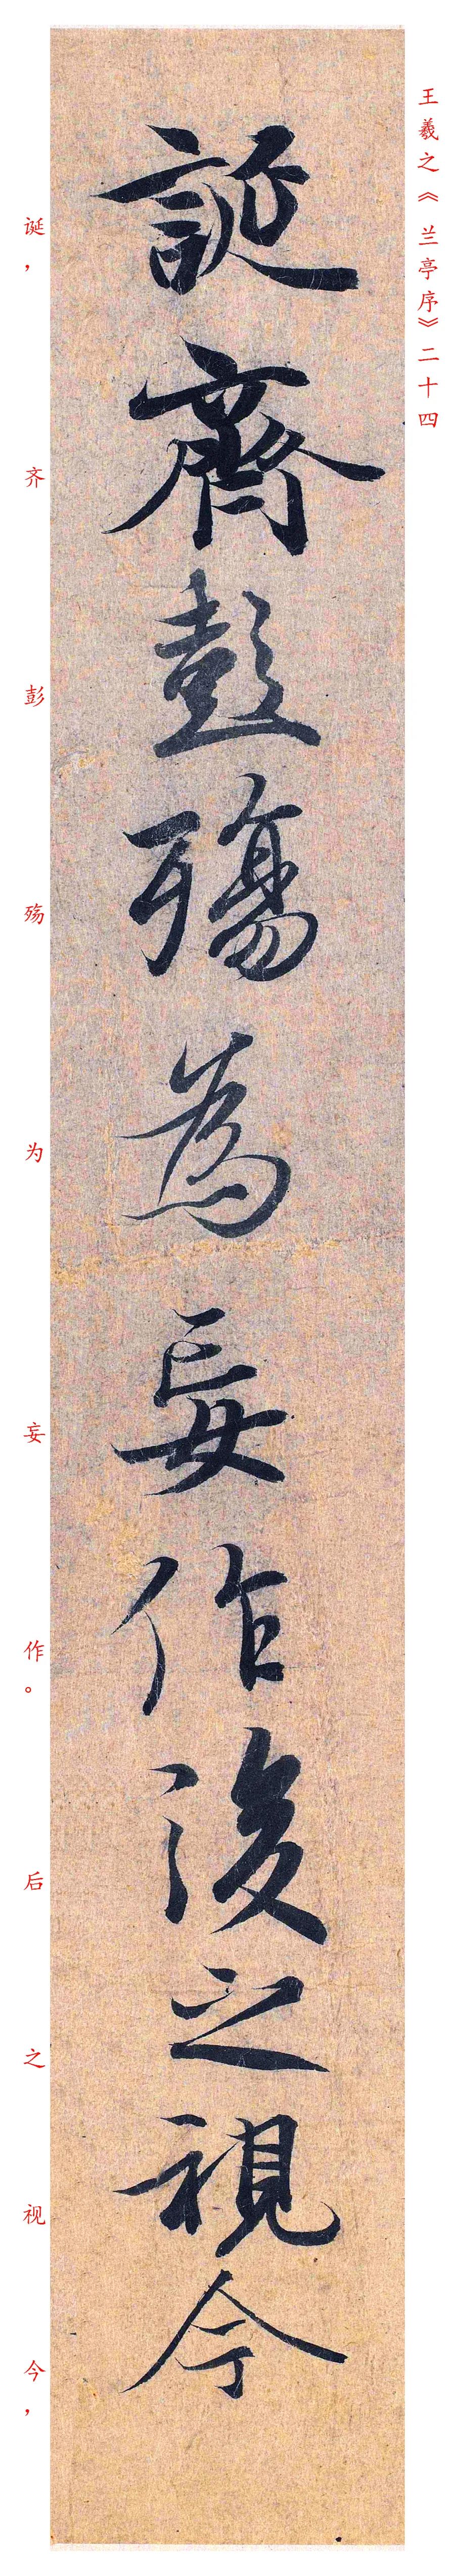 王羲之《兰亭序》二十四
誕齊彭殤為妄作後之視今
诞，齐彭殇为妄作。后之视今，